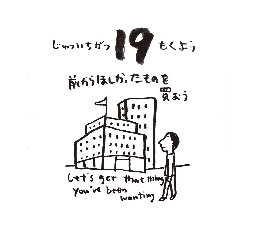 じゅういちがつ 19 もくよう
前からほしかったものを
買おう
Let's get that thing
you've been
wanting